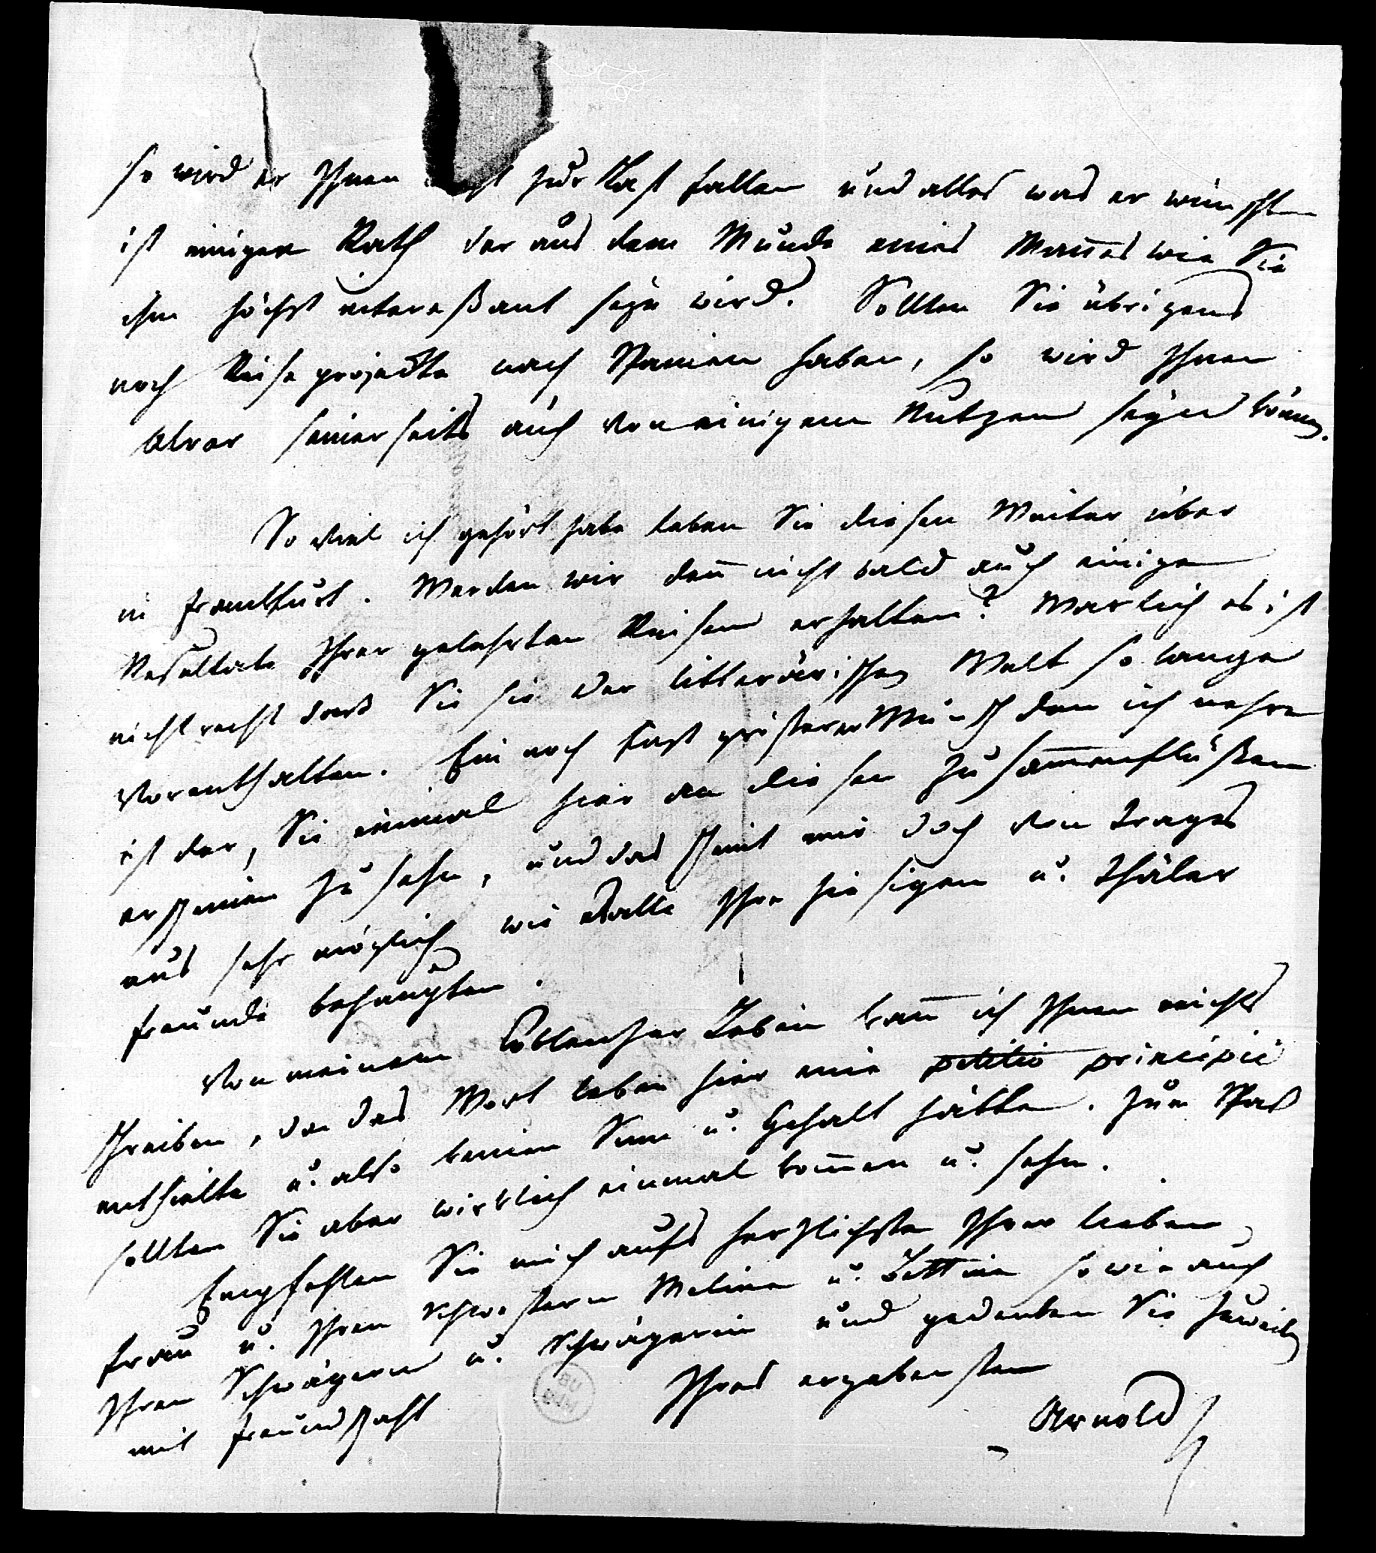 so wird er Ihnen nicht zur Last fallen und alles was er wünschte
ist einiger Rath der aus dem Munde eines Mañes wie Sie
ihm höchst intereßant seyn wird. Sollten Sie übrigens
noch Reiseprojeckte nach Spanien haben, so wird Ihnen
seinerseits auch von einigem Nutzen seyn könen.
So viel ich gehört habe leben Sie diesen Winter über
in Frankfurt. Werden wir deñ nicht bald auch einige
Resultate Ihrer gelehrten Reisen erhalten? Warlich es ist
nicht recht daß Sie sie der litterärischen Welt so lange
vorenthalten. Ein noch fast größerer Wunsch den ich nehre
ist der, Sie einmal hier an diesen Zusam̅enflüßen
erscheinen zu sehn, und das scheint mir doch von Trages
aus sehr möglich wie alle Ihre hiesigen u. Thäler
freunde behaupten.
Von meinem Coblenzer Leben kañ ich Ihnen nichts
schreiben, da das Wort leben hier eine petitio principii
enthielte u. also keinen Sinn u. Gehalt hätte. Zum Spaß
sollten Sie aber wirklich einmal kom̅en u. sehn.
Empfehlen Sie mich aufs herzlichste Ihrer lieben
Frau u. Ihren Schwestern Meline u. Bettine so wie auch
Ihren Schwägern u. Schwägerin und gedenken Sie zuweilen
mit Freundschaft
Ihres ergebensten
Arnold